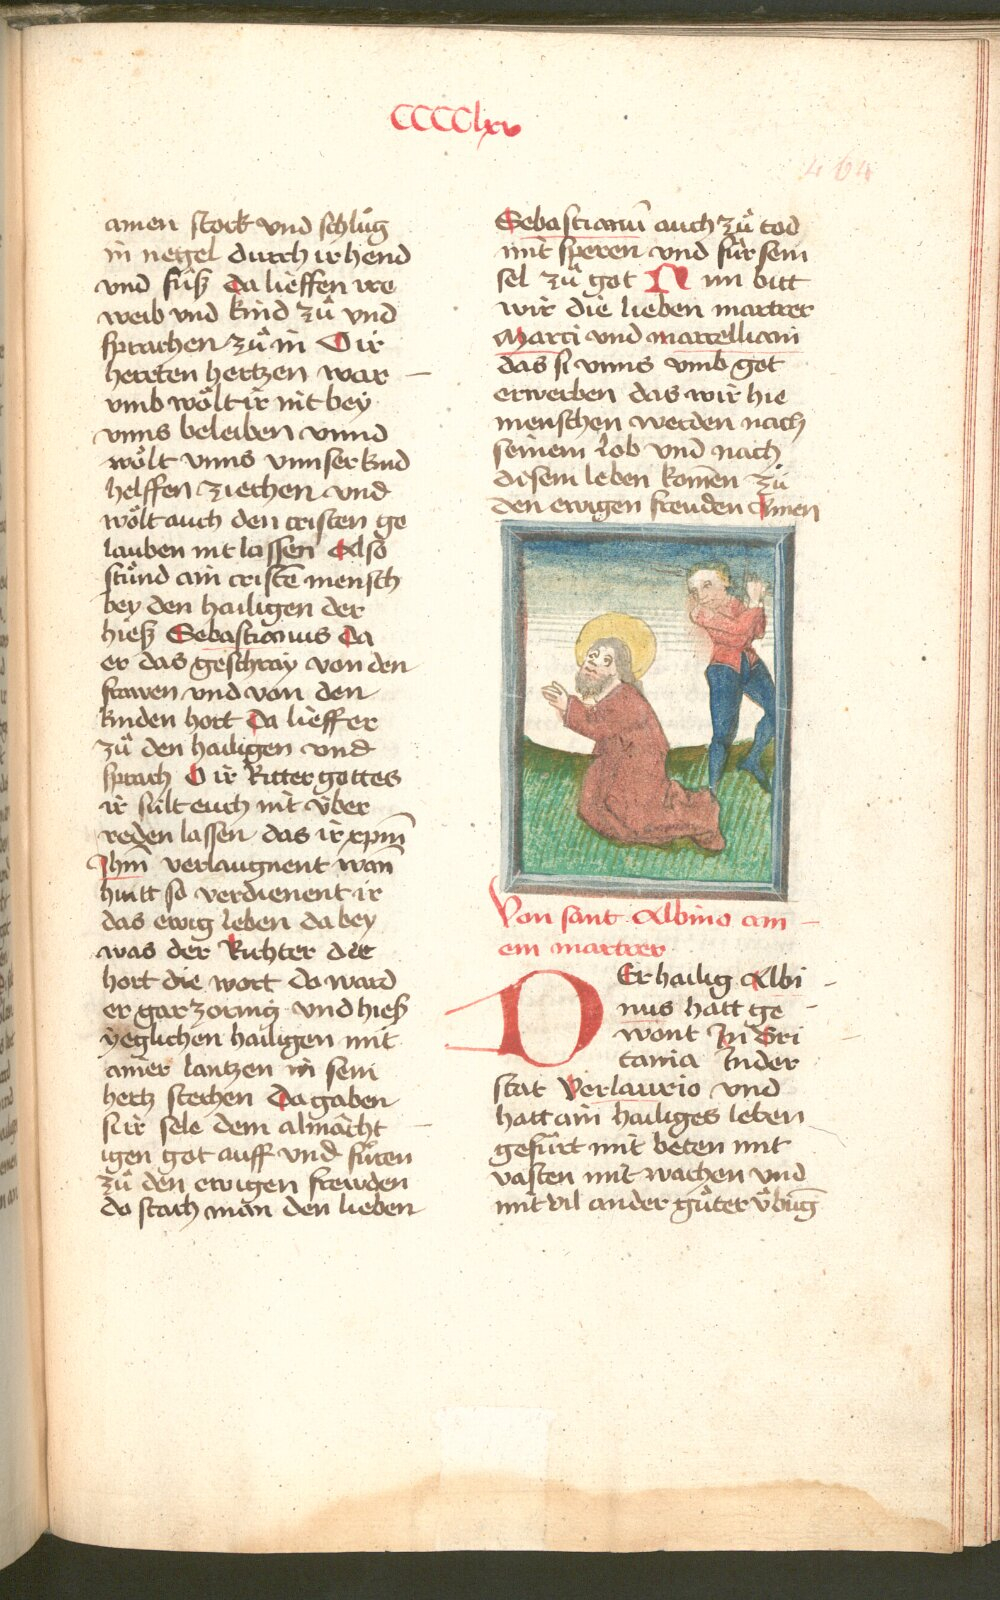 CCCClxv
464
ainen stock vnd schlůg
in negel durch ir hend
vnd fůß Da lieffen ire
weib vnd kind zů vnd
sprachen zů in O ir
herten hertzen war
vmb wo̊lt ir nit bey
vnns beleiben vnnd
wo̊lt vnns vnnser kind
helffen ziechen vnd
wo̊lt auch den cristen ge
lauben nit lassen Also
stůnd ain cristē mensch
bey den hailigen der
hieß Sebastianus Da
er das geschray von den
frawen vnd von den
kinden hort Da lieff er
zů den hailigen vnd
sprach O ir Ritter gottes
ir sült euch nit v̊ber
reden lassen das ir xp̄m
Jhm̄ verlaugnent wan̄
hiutt so verdienent ir
das ewig leben da bey
was der Richter der
hort die wort do ward
er gar zornig vnd hieß
yeglichen hailigen mit
ainer lantzen in sein
hertz stechen Da gaben
si ir sele dem almächt
igen got auff vnd fůren
zů den ewigen frewden
do stach man den lieben
Sebastianū auch zů tod
mit speren vnd fůr sein
sel zů got Nun bitt
wir die lieben martrer
Marci vnd marcelliani
das si vnns vmb got
erwerben das wir hie
menschen werden nach
seinem lob vnd nach
disem leben komēn zů
den ewigen freuden Amen
Von sant Albino ain
em martrer
DEr hailig Albi
nus hatt ge
wont Jn Bri
tania Jn der
stat Verlaurio vnd
hatt ain hailiges leben
gefůrt mit beten mit
vasten mit wachen vnd
mit vil ander gůter v̊būg